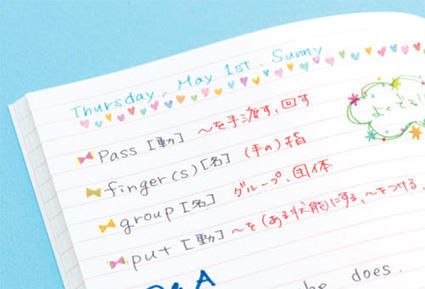 Thursday, May 1st. Sunny
pass [動] ～を手渡す, 回す
finger(s) [名] (手の)指
group [名] グループ, 団体
put [動] ～を(ある状態)にする、～をつける、
Q&A
he does.